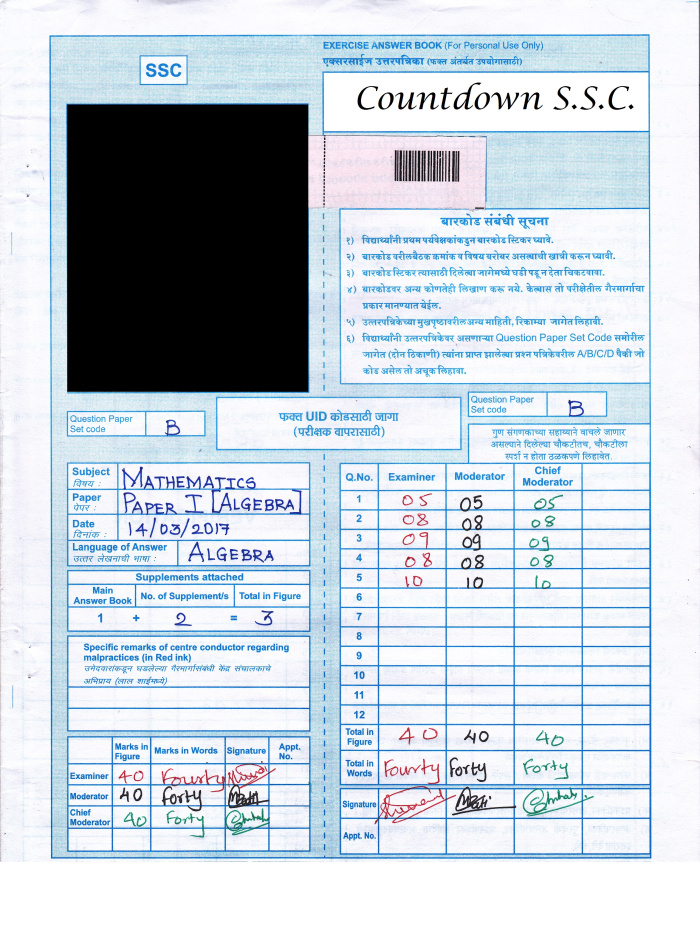 EXERCISE ANSWER BOOK (For Personal Use Only)
एक्सरसाईज उत्तरपत्रिका (फक्त अंतर्बत उपयोगासाठी)
SSC
Countdown S.S.C.
बारकोड संबंधी सूचना
१) विद्यार्थ्यांनी प्रथम पर्यवेक्षकांकडुन बारकोड स्टिकर घ्यावे.
२) बारकोड वरील बैठक क्रमांक व विषय बरोबर असल्याची खात्री करून घ्यावी.
३) बारकोड स्टिकर त्यासाठी दिलेल्या जागेमध्ये घडी पडू न देता चिकटवावा.
४) बारकोडवर अन्य कोणतेही लिखाण करू नये. केल्यास तो परीक्षेतील गैरमार्गाचा
प्रकार मानण्यात येईल.
५) उत्तरपत्रिकेच्या मुखपृष्ठावरील अन्य माहिती, रिकाम्या जागेत लिहावी.
६) विद्यार्थ्यांनी उत्तरपत्रिकेवर असणाऱ्या Question Paper Set Code समोरील
जागेत (दोन ठिकाणी) त्यांना प्राप्त झालेल्या प्रश्न पत्रिकेवरील A/B/C/D पैकी जो
कोड असेल तो अचूक लिहावा.
Question Paper Set code B
फक्त UID कोडसाठी जागा
(परीक्षक वापरासाठी)
Question Paper Set code B
गुण संगणकाच्या सहाय्याने वाचले जाणार
असल्याने दिलेल्या चौकटीतच, चौकटीला
स्पर्श न होता ठळकपणे लिहावेत.
Subject विषय : MATHEMATICS
Paper पेपर : PAPER I [ALGEBRA]
Date दिनांक : 14/03/2017
Language of Answer उत्तर लेखनाची भाषा : ALGEBRA
Supplements attached
Main Answer Book No. of Supplement/s Total in Figure
1 + 2 = 3
Specific remarks of centre conductor regarding
malpractices (in Red ink)
उमेदवारांकडून घडलेल्या गैरमार्गासंबंधी केंद्र संचालकाचे
अभिप्राय (लाल शाईमध्ये)
Marks in Figure Marks in Words Signature Appt. No.
Examiner 40 Fourty
Moderator 40 forty
Chief Moderator 40 Forty
Q.No. Examiner Moderator Chief Moderator
1 05 05 05
2 08 08 08
3 09 09 09
4 08 08 08
5 10 10 10
6
7
8
9
10
11
12
Total in Figure 40 40 40
Total in Words Fourty forty Forty
Signature
Appt. No.